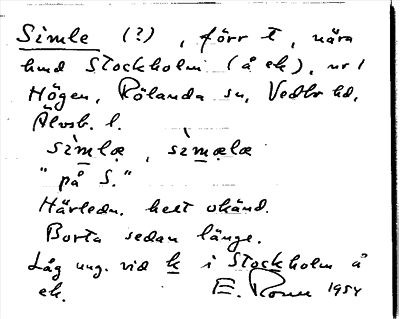 Simle (?), förr t, nära
hmd Stockholm (å ek), nr 1
Högen, Rölanda sn, Vedbo hd,
Älvsb. l.
sìmlæ, sìmælæ
"på S."
Härledn. helt okänd.
Borta sedan länge.
Låg ung. vid k i Stockholm å
ek. E. Rosen 1954